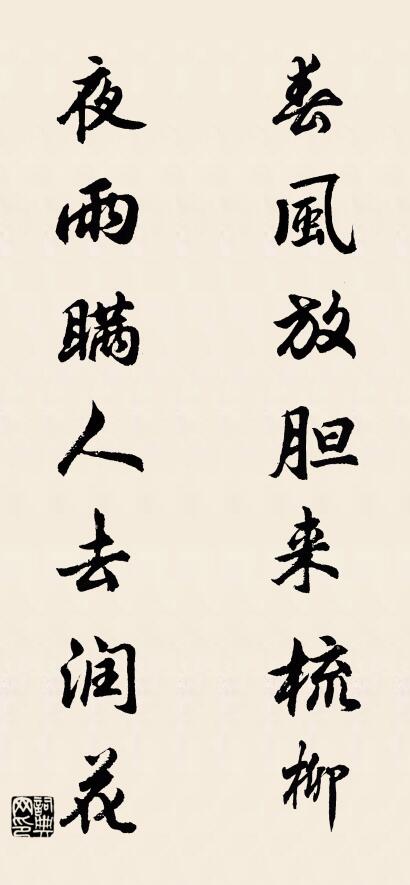 春風放胆来梳柳
夜雨瞒人去润花
詞典网印